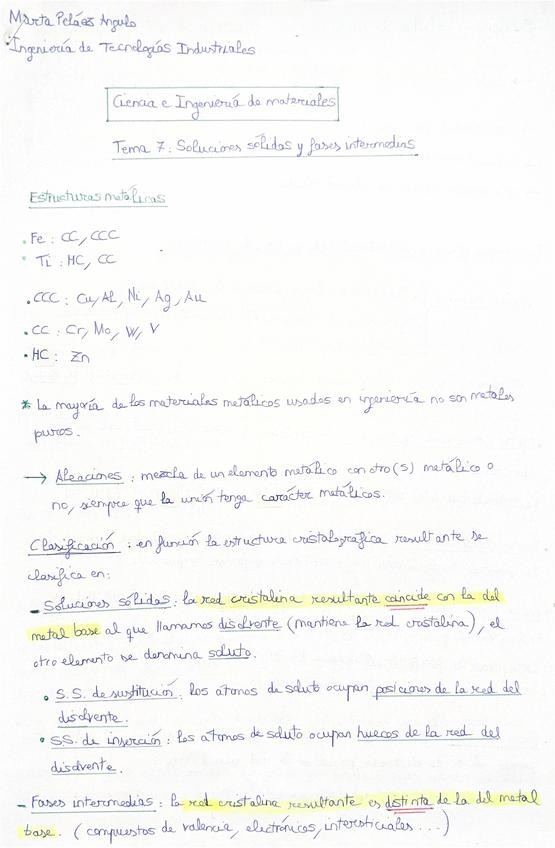 Marta Peláez Angulo
Ingeniería de Tecnologías Industriales
Ciencia e Ingeniería de materiales
Tema 7: Soluciones sólidas y fases intermedias
Estructuras metálicas
. Fe : CC, CCC
. Ti : HC, CC
. CCC : Cu, Al, Ni, Ag, Au
. CC : Cr, Mo, W, V
. HC : Zn
* La mayoría de los materiales metálicos usados en ingeniería no son metales
puros.
→ Aleaciones : mezcla de un elemento metálico con otro(s) metálico o
no, siempre que la unión tenga carácter metálicos.
Clasificación : en función la estructura cristalográfica resultante se
clasifica en:
- Soluciones sólidas : la red cristalina resultante coincide con la del
metal base al que llamamos disolvente (mantiene la red cristalina), el
otro elemento se denomina soluto.
• S.S. de sustitución : los átomos de soluto ocupan posiciones de la red del
disolvente.
• S.S. de inserción : los átomos de soluto ocupan huecos de la red del
disolvente.
- Fases intermedias : la red cristalina resultante es distinta de la del metal
base. (compuestos de valencia, electrónicos, intersticiales...)